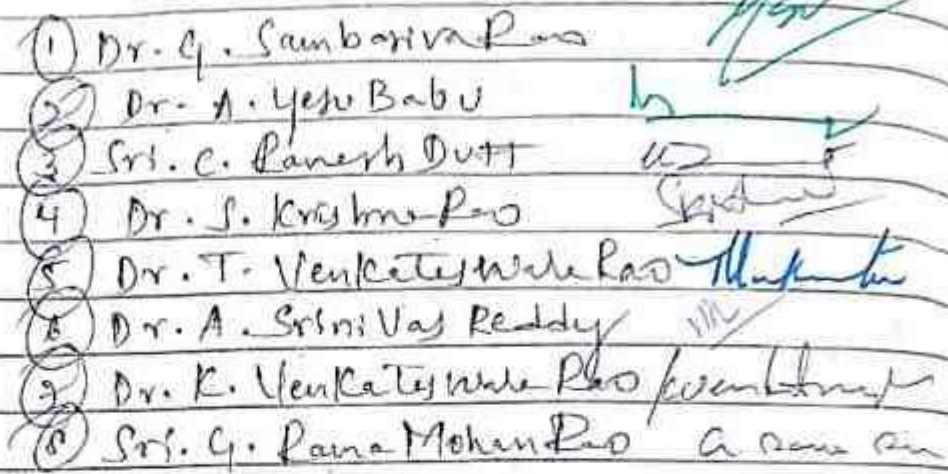 1 Dr. G. Sambasiva Rao
2 Dr. A. Yesu Babu
3 Sri. C. Ramesh Dutt
4 Dr. S. Krishna Rao
5 Dr. T. Venkateswara Rao
6 Dr. A. Srinivas Reddy
7 Dr. K. Venkateswara Rao
8 Sri. G. Rama Mohan Rao